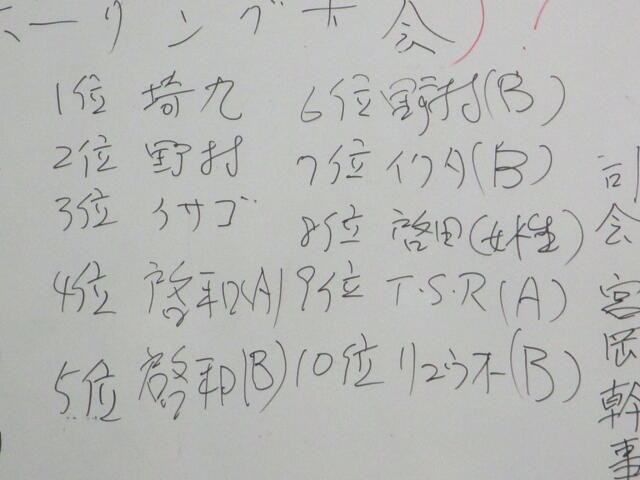 ボーリング大会
1位 埼九
2位 野村
3位 イサゴ
4位 啓和(A)
5位 啓和(B)
6位 野村(B)
7位 イワタ(B)
8位 啓田(女性)
9位 T.S.R(A)
10位 リュウホー(B)
司会 宮岡幹事